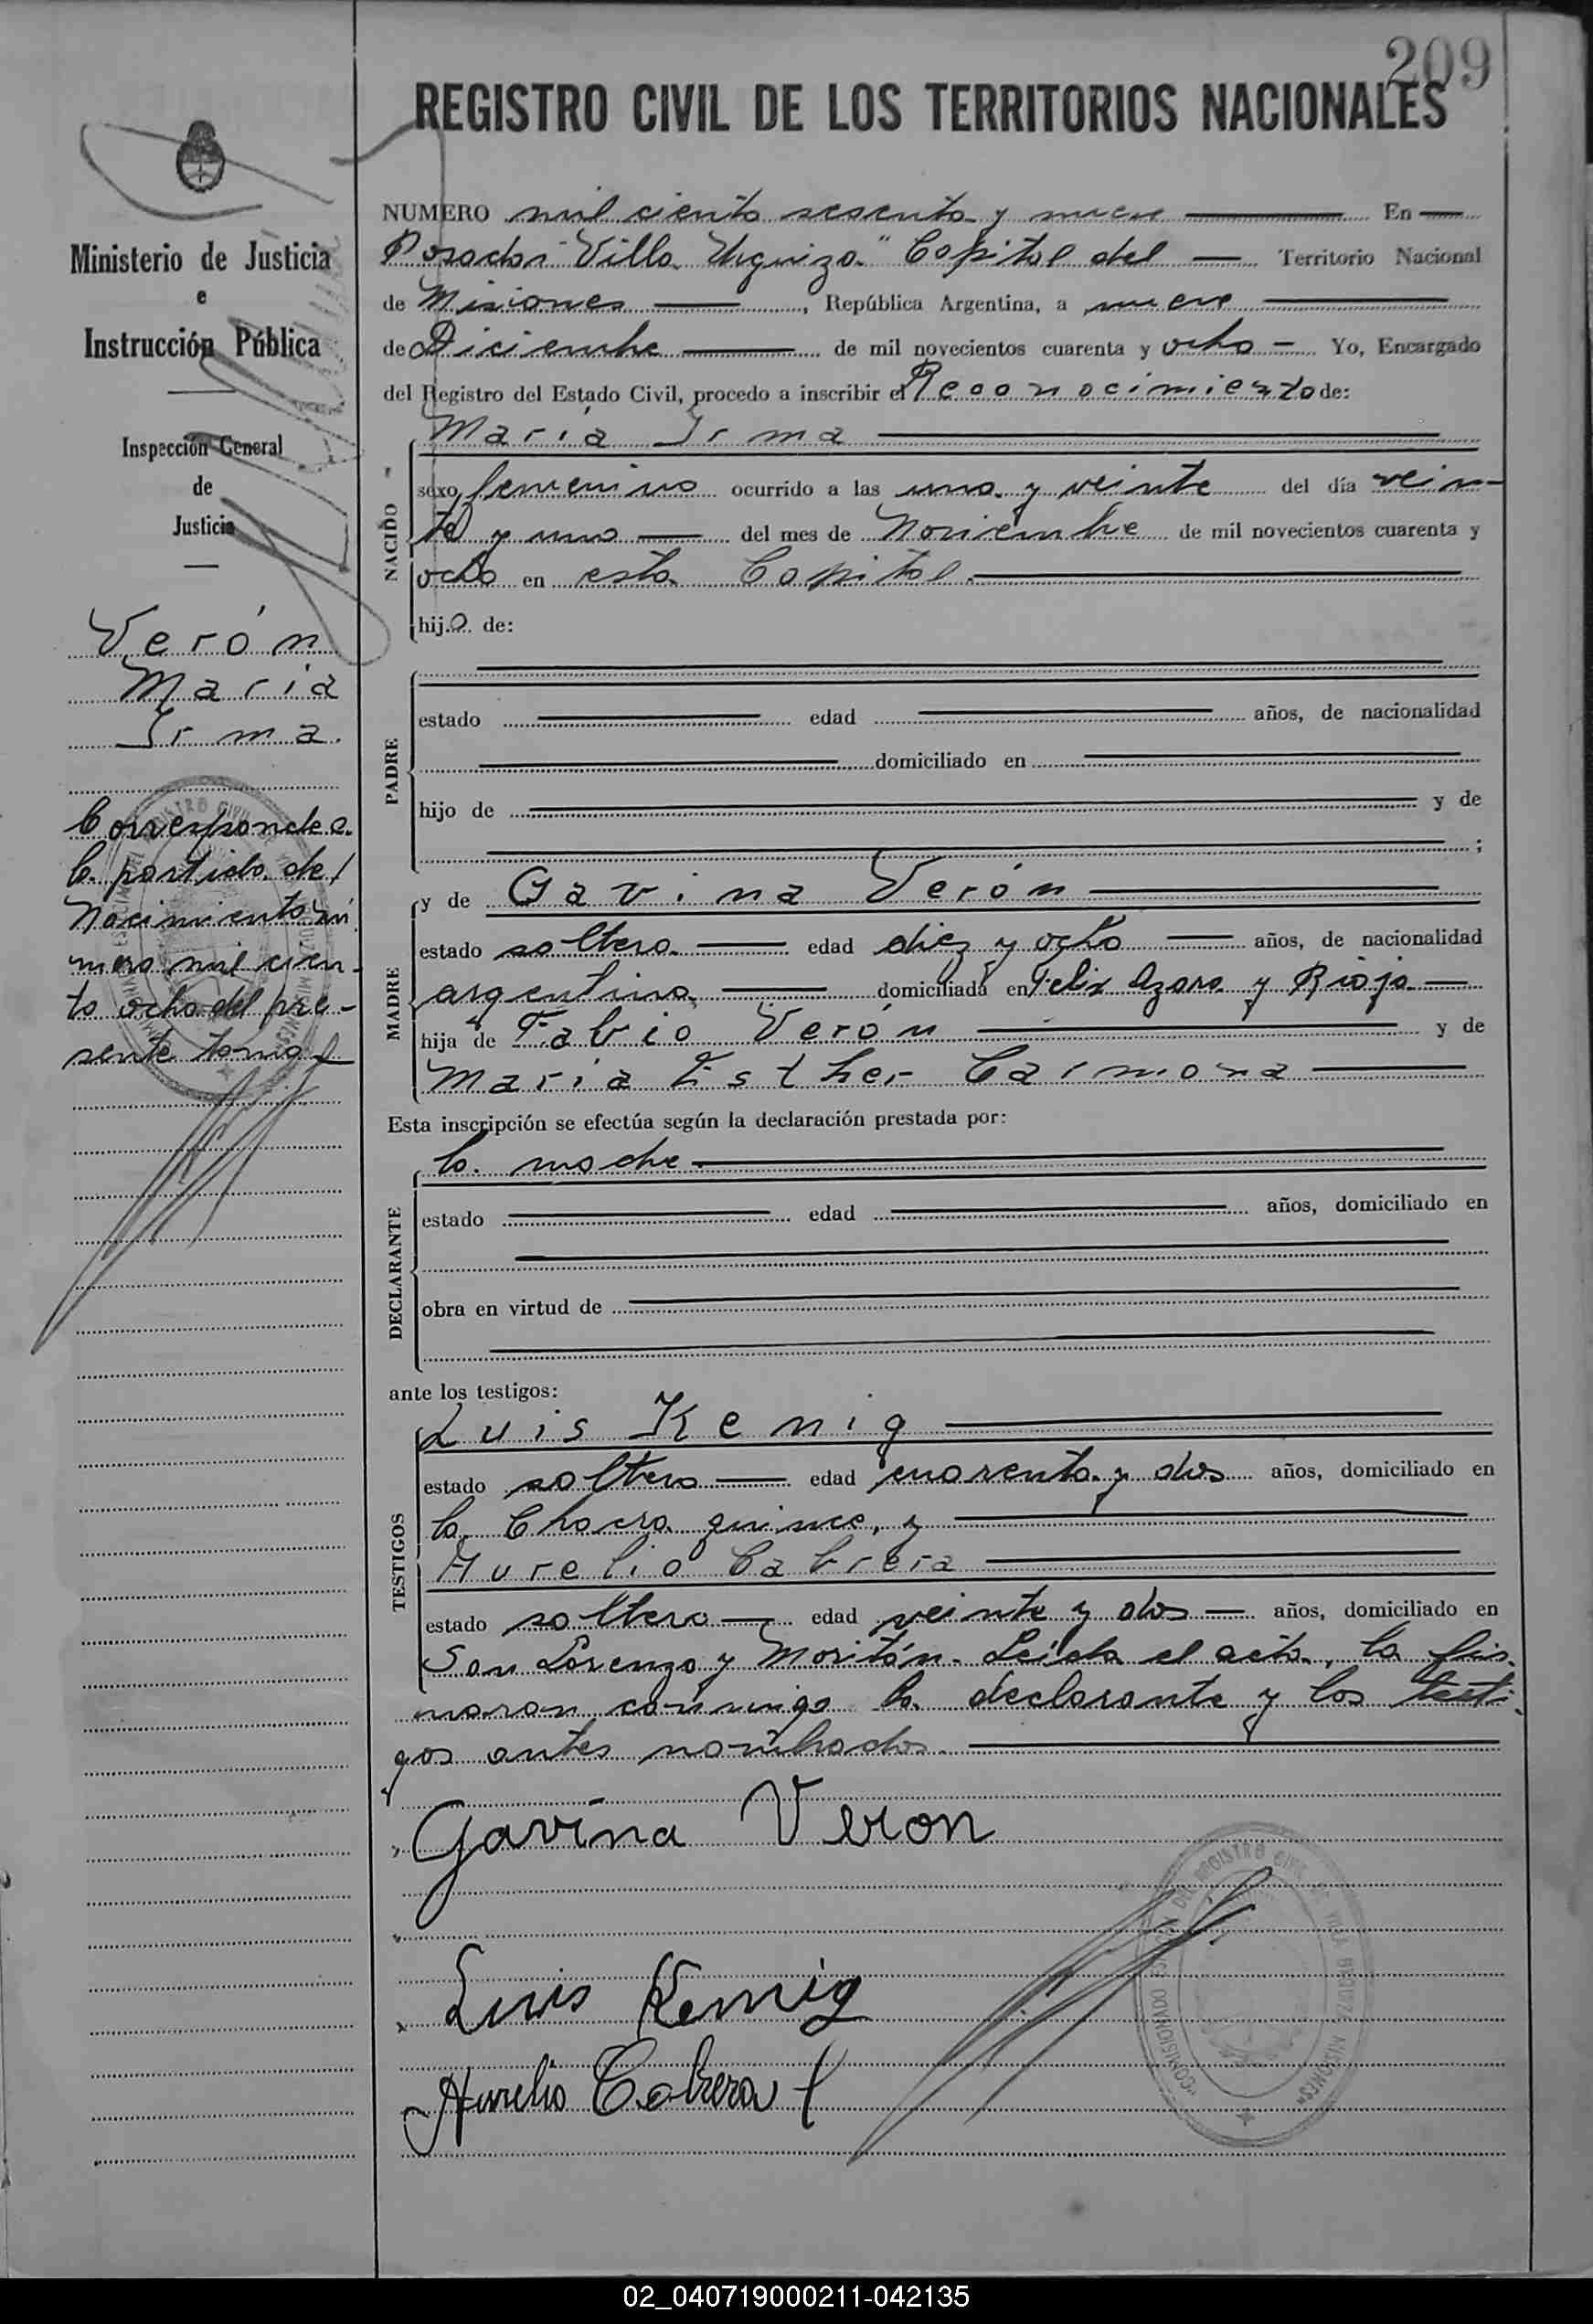 209
REGISTRO CIVIL DE LOS TERRITORIOS NACIONALES
Ministerio de Justicia
e
Instrucción Pública
Inspección General
de
Justicia
Verón
María
Irma.
Corresponde a
la partida de
Nacimiento nú
mero mil cien-
to ocho del pre-
sente tomo
NUMERO mil ciento sesenta y nueve En
Posadas "Villa Urquiza" Capital del Territorio Nacional
de Misiones, República Argentina, a nueve
de Diciembre de mil novecientos cuarenta y ocho - Yo, Encargado
del Registro del Estado Civil, procedo a inscribir el Reconocimiento de:
NACIDO
María Irma
sexo femenino ocurrido a las una y veinte del día vein-
te y uno del mes de Noviembre de mil novecientos cuarenta y
ocho en esta Capital.
hija de:
PADRE
estado edad años, de nacionalidad
domiciliado en
hijo de y de
;
MADRE
y de Gavina Verón
estado soltera edad diez y ocho años, de nacionalidad
argentina domiciliada en Felix Azara y Rioja
hija de Fabio Verón y de
María Esther Carmona
Esta inscripción se efectúa según la declaración prestada por:
DECLARANTE
la madre.
estado edad años, domiciliado en
obra en virtud de
ante los testigos:
TESTIGOS
Luis Kenig
estado soltero edad cuarenta y dos años, domiciliado en
la Chacra quince, y
Aurelio Cabrera
estado soltero edad veinte y dos años, domiciliado en
San Lorenzo y Moritán. Leída el acta, la fir-
maron conmigo la declarante y los testi-
gos antes nombrados.
Gavina Veron
Luis Kenig
Aurelio Cabrera
02_040719000211-042135